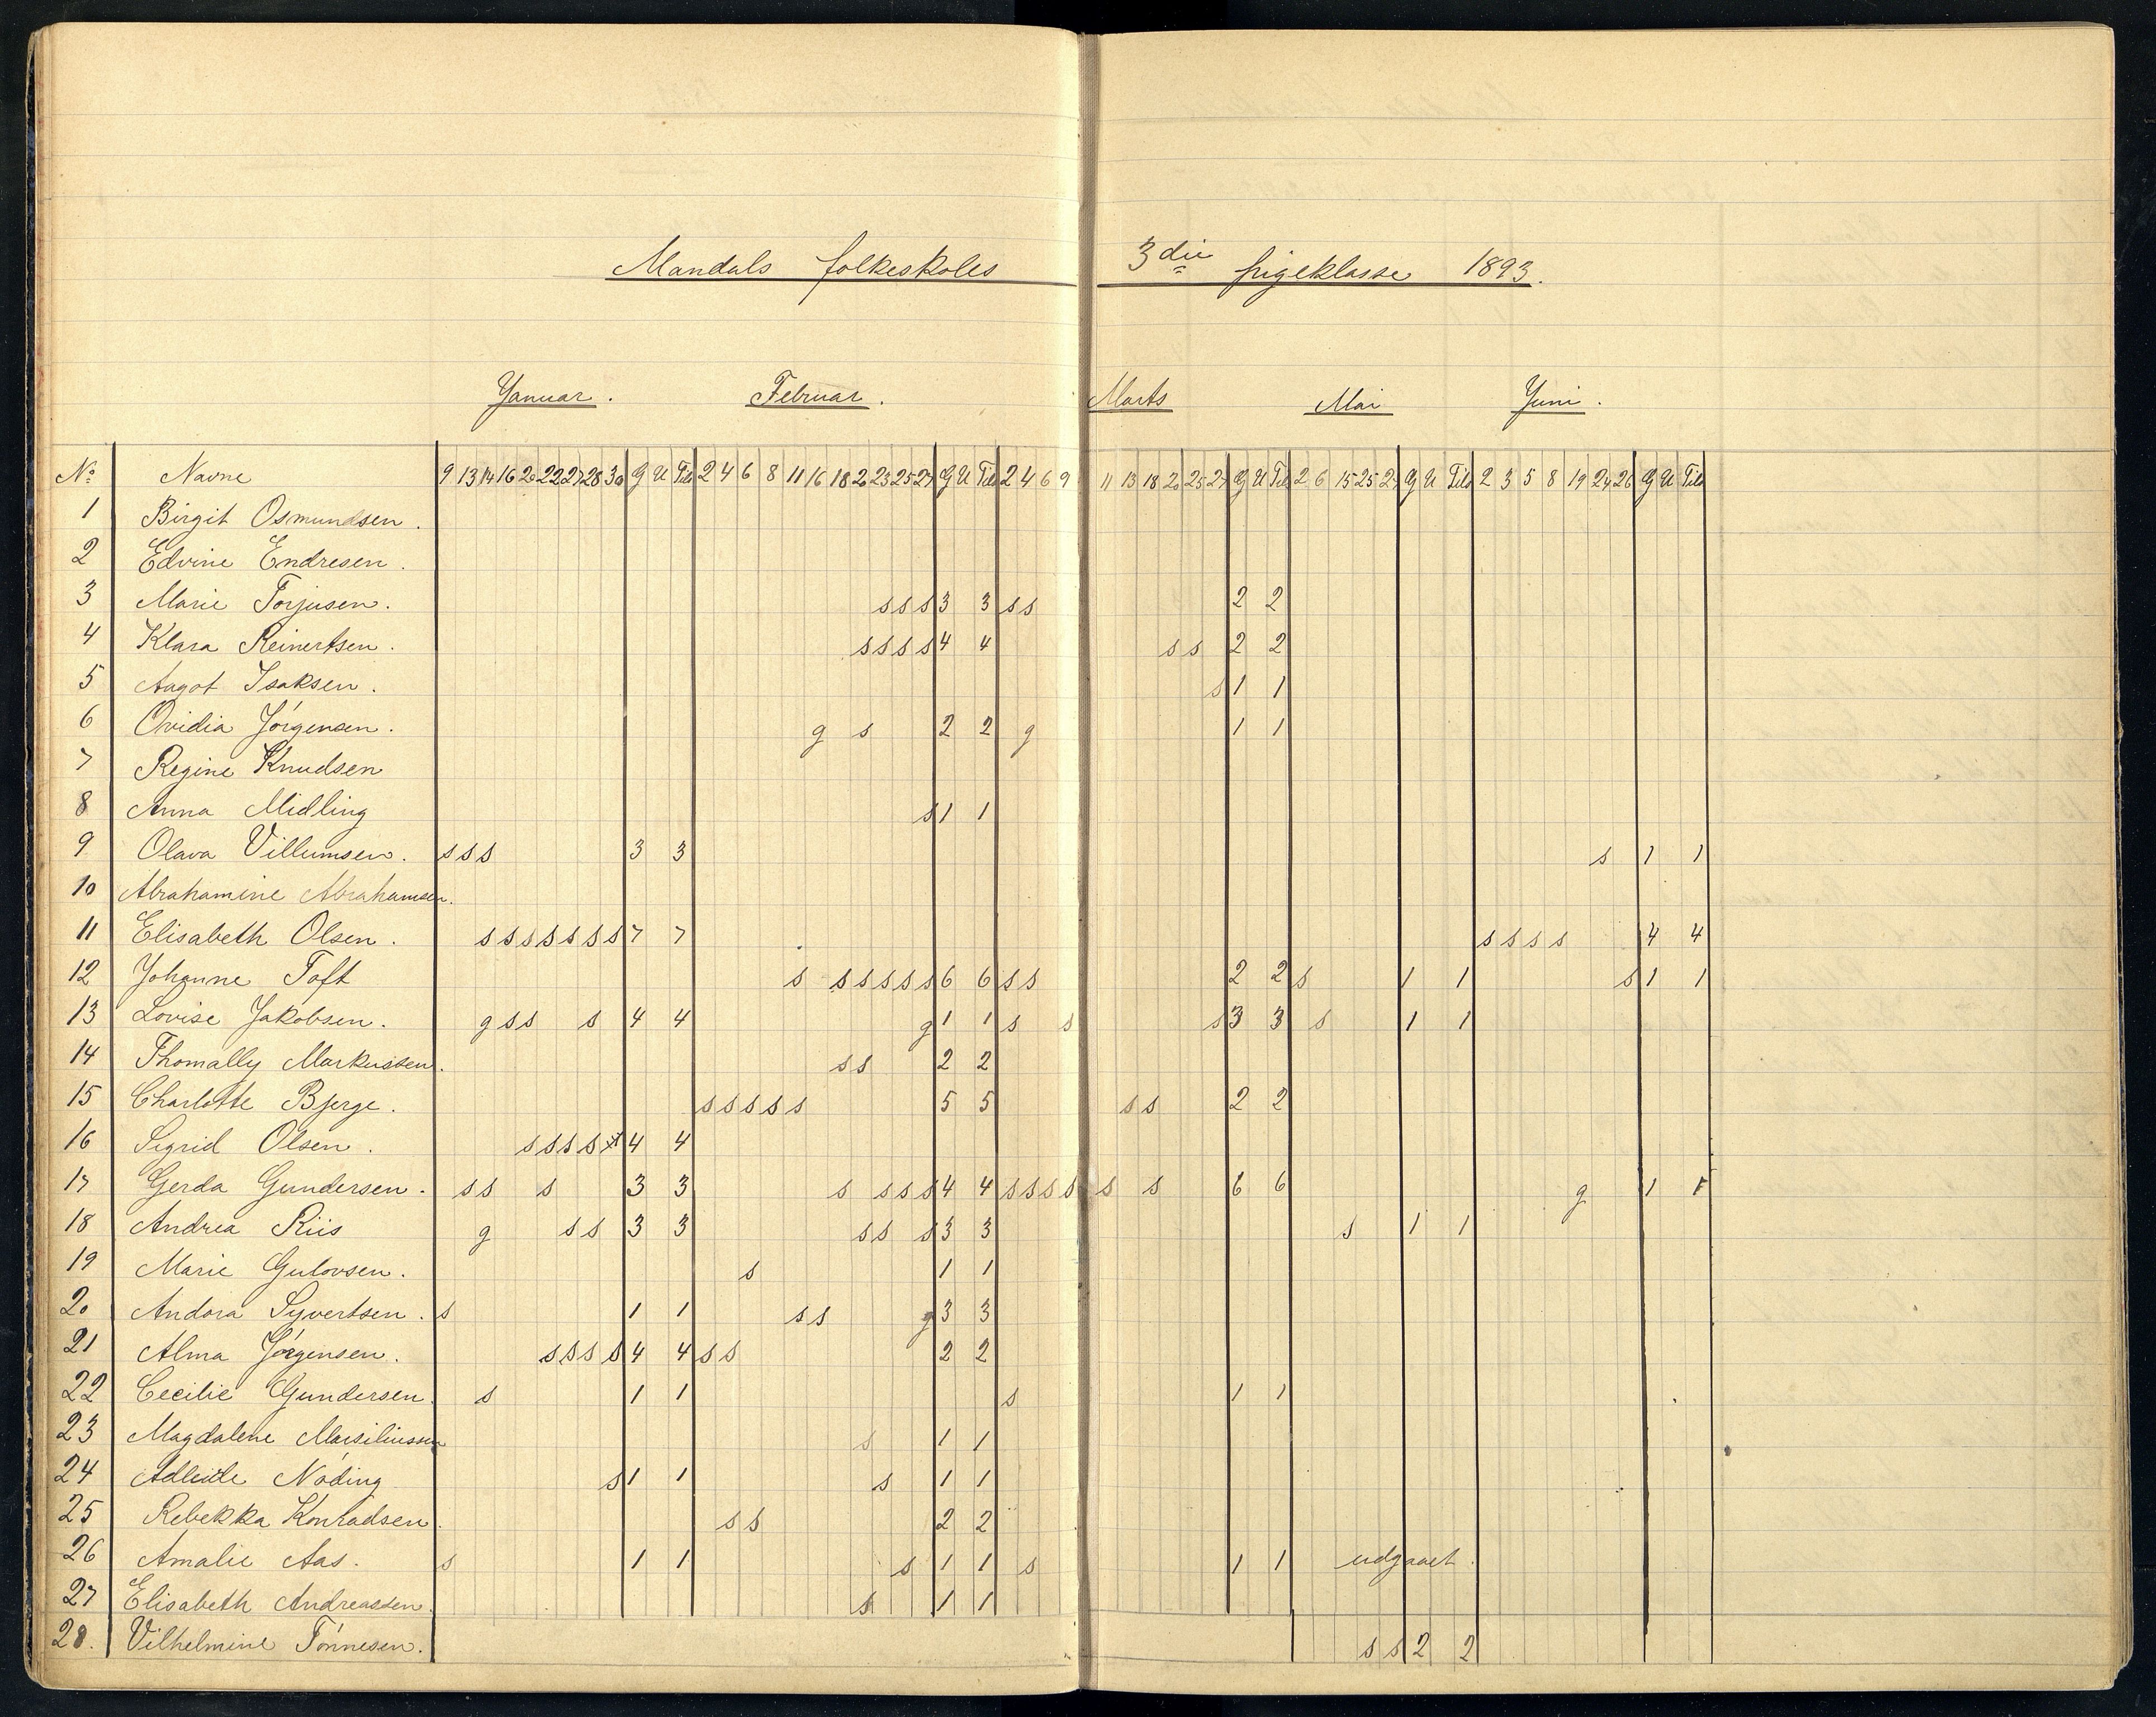 Mandals folkeskoles 3die pigeklasse 1893.
Januar. Februar. Marts Mai Juni.
No Navne 9 13 14 16 20 22 22 27 28 30 G U Tils 2 4 6 8 11 16 18 20 23 25 27 G U Tils 2 4 6 9 11 13 18 20 25 27 G U Tils 2 6 15 25 27 G U Tils 2 3 5 8 19 24 26 G U Tils
1 Birgit Osmundsen.
2 Edvine Endresen.
3 Marie Torjusen. s s s 3 3 s s 2 2
4 Klara Reinertsen. s s s s 4 4 s s 2 2
5 Aagot Isaksen. s 1 1
6 Ovidia Jörgensen. g s 2 2 g 1 1
7 Regine Knudsen
8 Anna Midling s 1 1
9 Olava Villumsen. s s s 3 3 s 1 1
10 Abrahamine Abrahamsen.
11 Elisabeth Olsen. s s s s s s s 7 7 s s s s 4 4
12 Johanne Toft s s s s s s 6 6 s s 2 2 s 1 1 s 1 1
13 Lovise Jakobsen. g s s s 4 4 g 1 1 s s s 3 3 s 1 1
14 Thomally Markussen. s s 2 2
15 Charlotte Bjerge. s s s s s 5 5 s s 2 2
16 Sigrid Olsen. s s s s 4 4
17 Gerda Gundersen. s s s 3 3 s s s s 4 4 s s s s s s 6 6 g 1 1
18 Andrea Riis g s s 3 3 s s s 3 3 s 1 1
19 Marie Gulovsen. s 1 1
20 Andora Syvertsen. s 1 1 s s g 3 3
21 Alma Jörgensen. s s s s 4 4 s s 2 2
22 Cecilie Gundersen. s 1 1 s 1 1
23 Magdalene Marsiliussen s 1 1
24 Adleide Nöding s 1 1 s 1 1
25 Rebekka Konradsen. s s 2 2
26 Amalie Aas. s 1 1 s 1 1 s 1 1 udgaaet.
27 Elisabeth Andreassen. s 1 1
28. Vilhelmine Tönnesen. s s 2 2